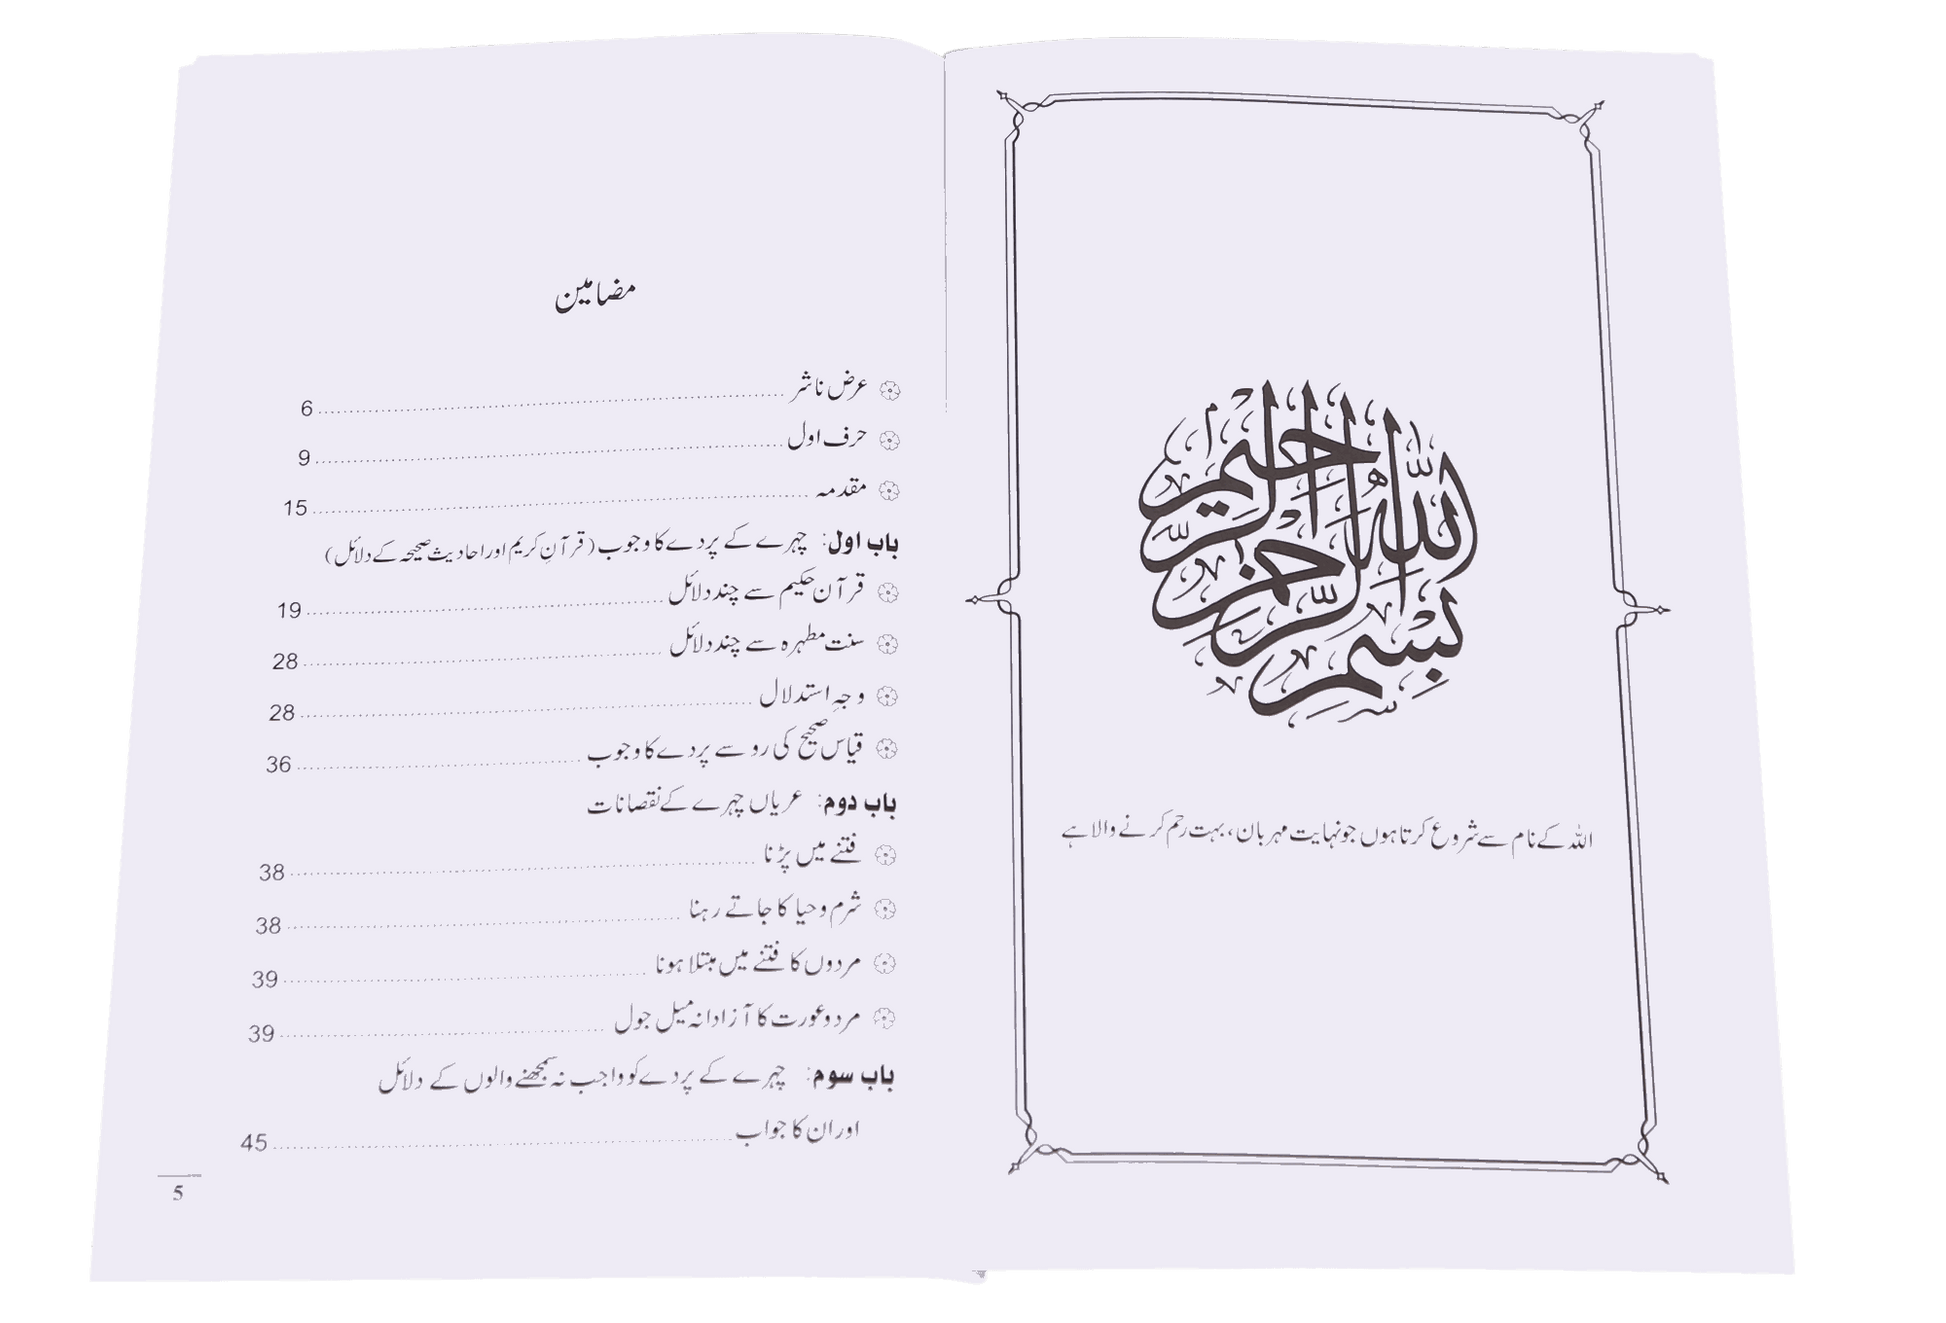 بسم الله الرحمن الرحيم
اللہ کے نام سے شروع کرتا ہوں جو نہایت مہربان، بہت رحم کرنے والا ہے
مضامین
عرض ناشر ........ 6
حرف اول ........ 9
مقدمہ ........ 15
باب اول: چہرے کے پردے کا وجوب (قرآنِ کریم اور احادیث صحیحہ کے دلائل)
قرآن حکیم سے چند دلائل ........ 19
سنت مطہرہ سے چند دلائل ........ 28
وجہِ استدلال ........ 28
قیاس صحیح کی رو سے پردے کا وجوب ........ 36
باب دوم: عریاں چہرے کے نقصانات
فتنے میں پڑنا ........ 38
شرم و حیا کا جاتے رہنا ........ 38
مردوں کا فتنے میں مبتلا ہونا ........ 39
مرد و عورت کا آزادانہ میل جول ........ 39
باب سوم: چہرے کے پردے کو واجب نہ سمجھنے والوں کے دلائل
اور ان کا جواب ........ 45
5